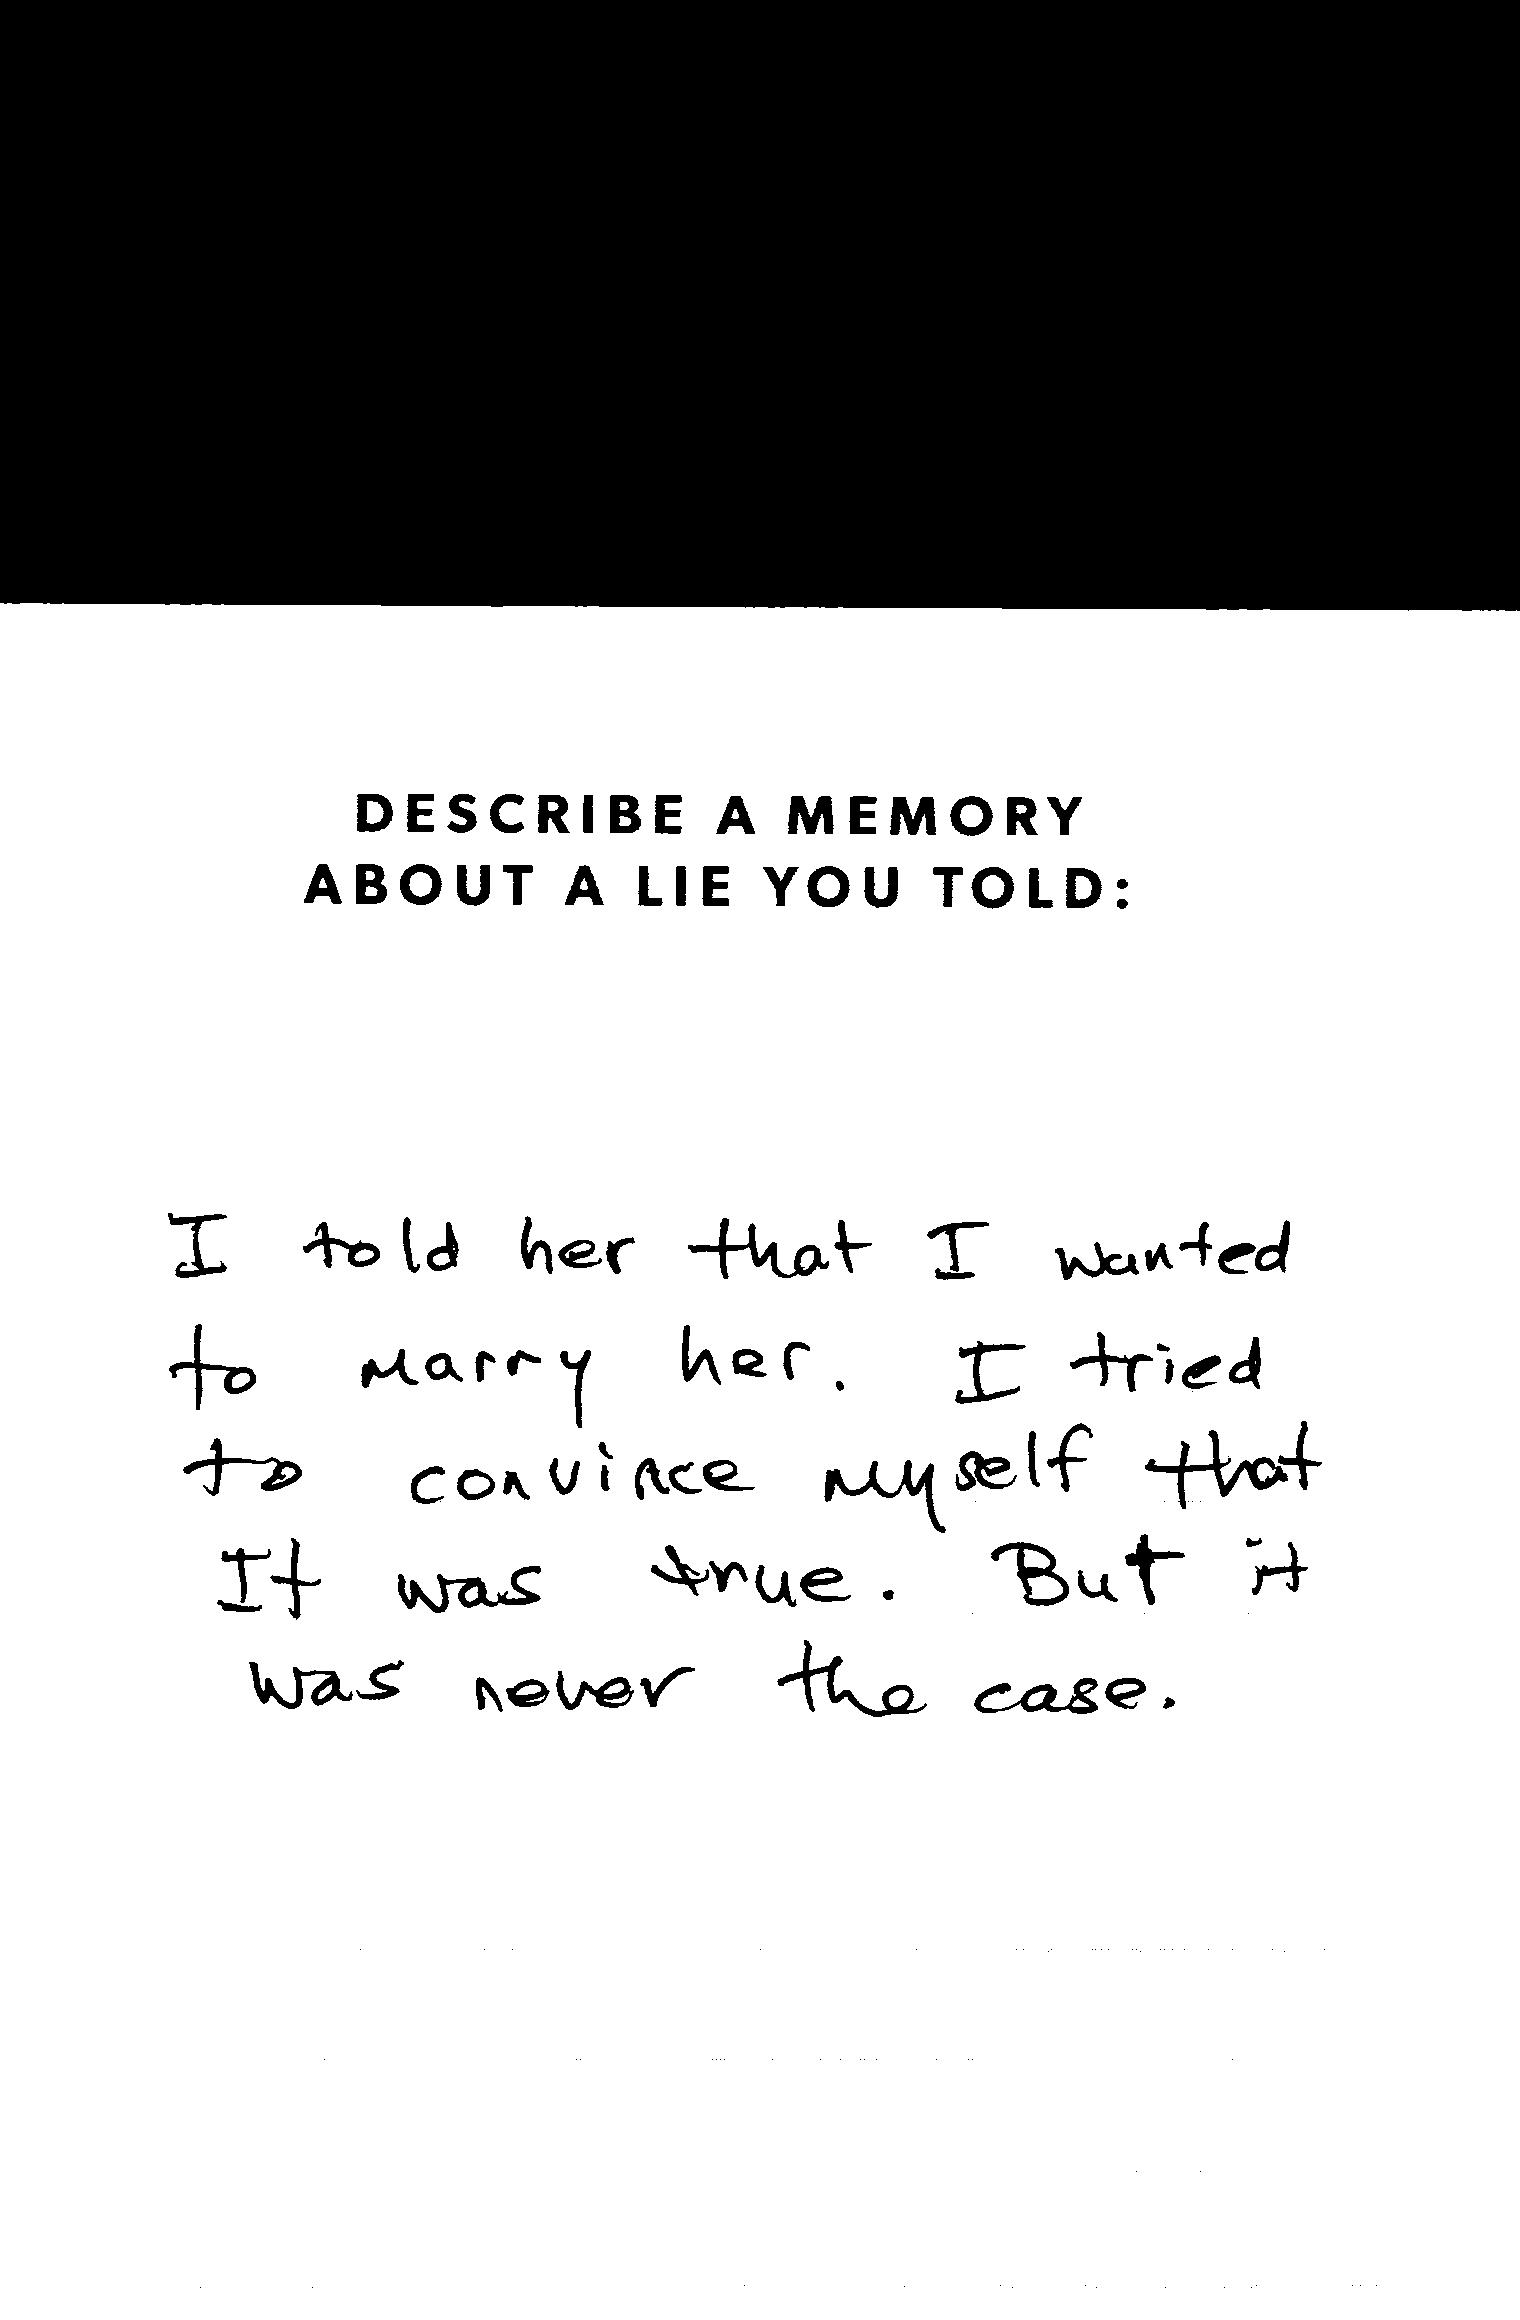 DESCRIBE A MEMORY
ABOUT A LIE YOU TOLD:
I told her that I wanted
to marry her. I tried
to convince myself that
It was true. But it
was never the case.